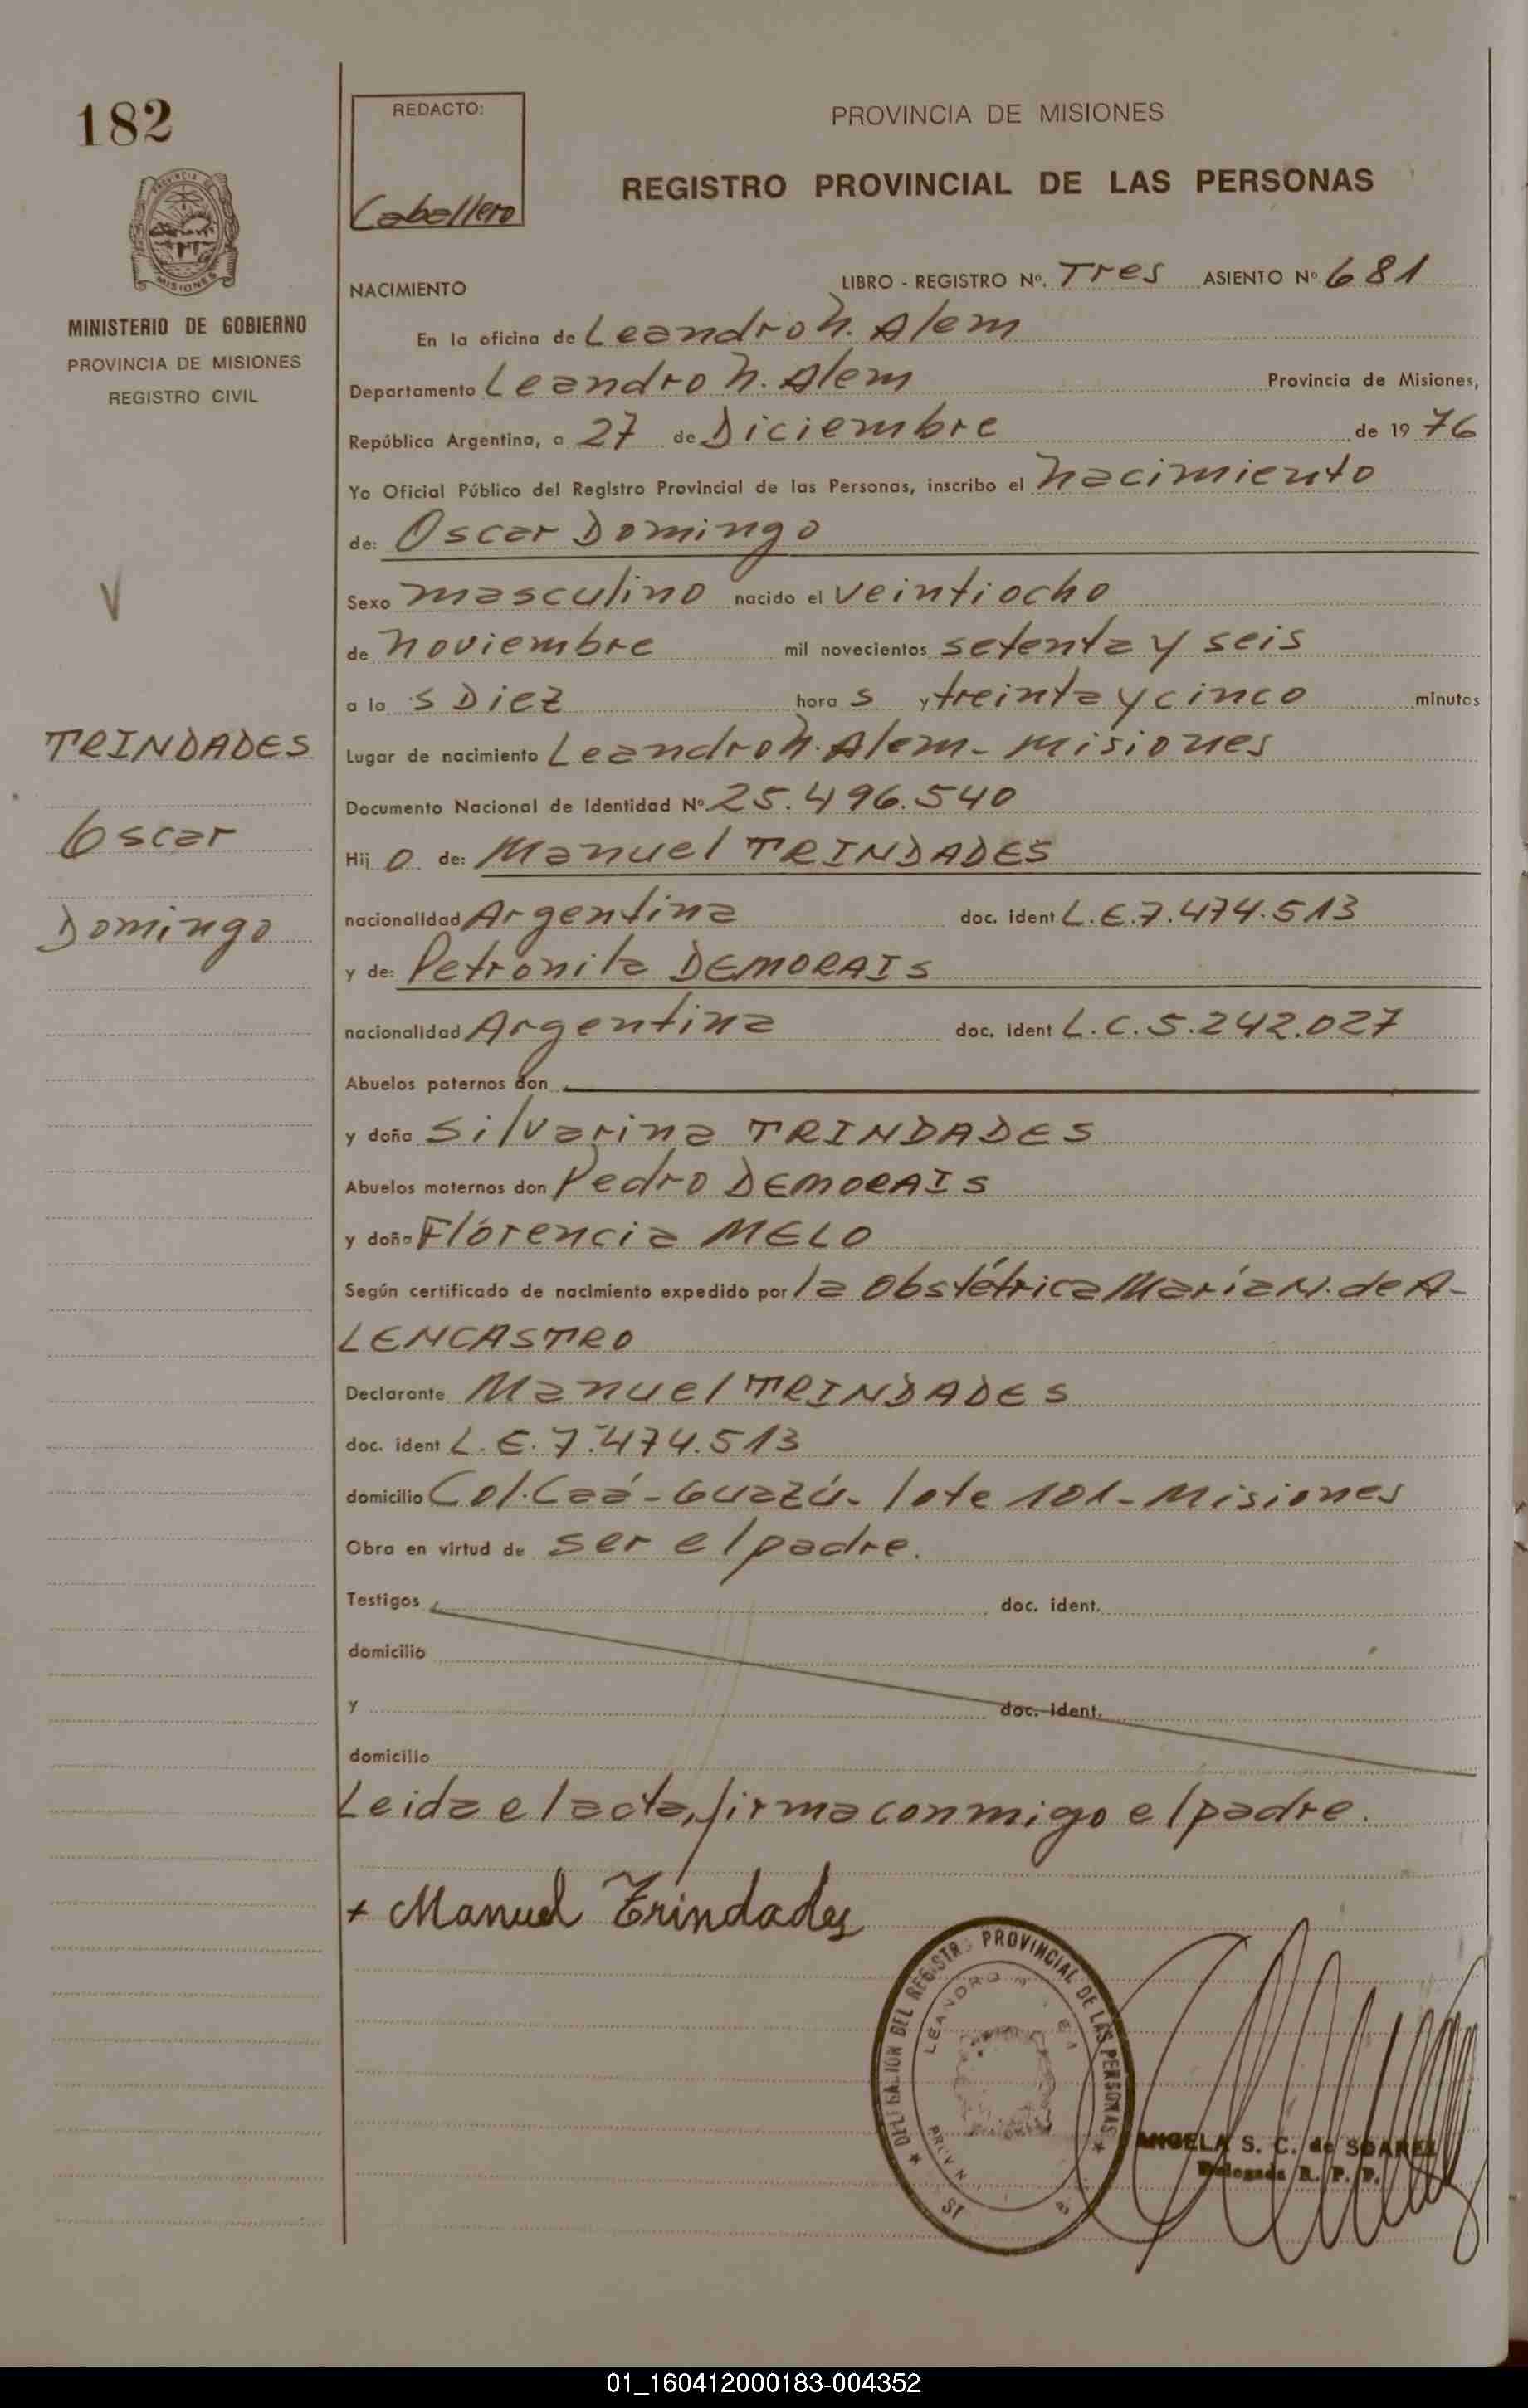 182
REDACTO:
Caballero
PROVINCIA DE MISIONES
REGISTRO PROVINCIAL DE LAS PERSONAS
MINISTERIO DE GOBIERNO
PROVINCIA DE MISIONES
REGISTRO CIVIL
NACIMIENTO LIBRO - REGISTRO Nº. Tres ASIENTO Nº 681
En la oficina de Leandro N. Alem
Departamento Leandro N. Alem Provincia de Misiones,
República Argentina, a 27 de Diciembre de 19 76
Yo Oficial Público del Registro Provincial de las Personas, inscribo el nacimiento
de: Oscar Domingo
Sexo masculino nacido el veintiocho
de noviembre mil novecientos setenta y seis
a la s Diez hora s y treinta y cinco minutos
TRINDADES
Oscar
Domingo
Lugar de nacimiento Leandro N. Alem - Misiones
Documento Nacional de Identidad Nº. 25.496.540
Hij o de: Manuel TRINDADES
nacionalidad Argentina doc. ident L.E. 7.474.513
y de: Petronila DEMORAIS
nacionalidad Argentina doc. ident L.C. 5.242.027
Abuelos paternos don
y doña Silvarina TRINDADES
Abuelos maternos don Pedro DEMORAIS
y doña Florencia MELO
Según certificado de nacimiento expedido por la Obstétrica María N. de A-
LENCASTRO
Declarante Manuel TRINDADES
doc. ident L.E. 7.474.513
domicilio Col. Caá-Guazú - lote 101 - Misiones
Obra en virtud de ser el padre.
Testigos doc. ident.
domicilio
y doc. ident.
domicilio
Leida el acta, firma conmigo el padre.
+ Manuel Trindades
DELEGACION DEL REGISTRO PROVINCIAL DE LAS PERSONAS
LEANDRO N.
ANGELA S. C. de SOAREZ
Delegada R. P. P.
01_160412000183-004352